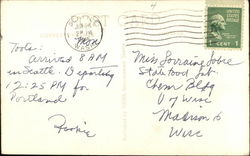 POST CARD
Toots:
Arrived 8 AM
in Seattle. Departing
12:25 PM for
Portland
Miss Lorraine
State Food
Chem Bldg
U of Wisc
Madison 6
Wisc
1 CENT 1